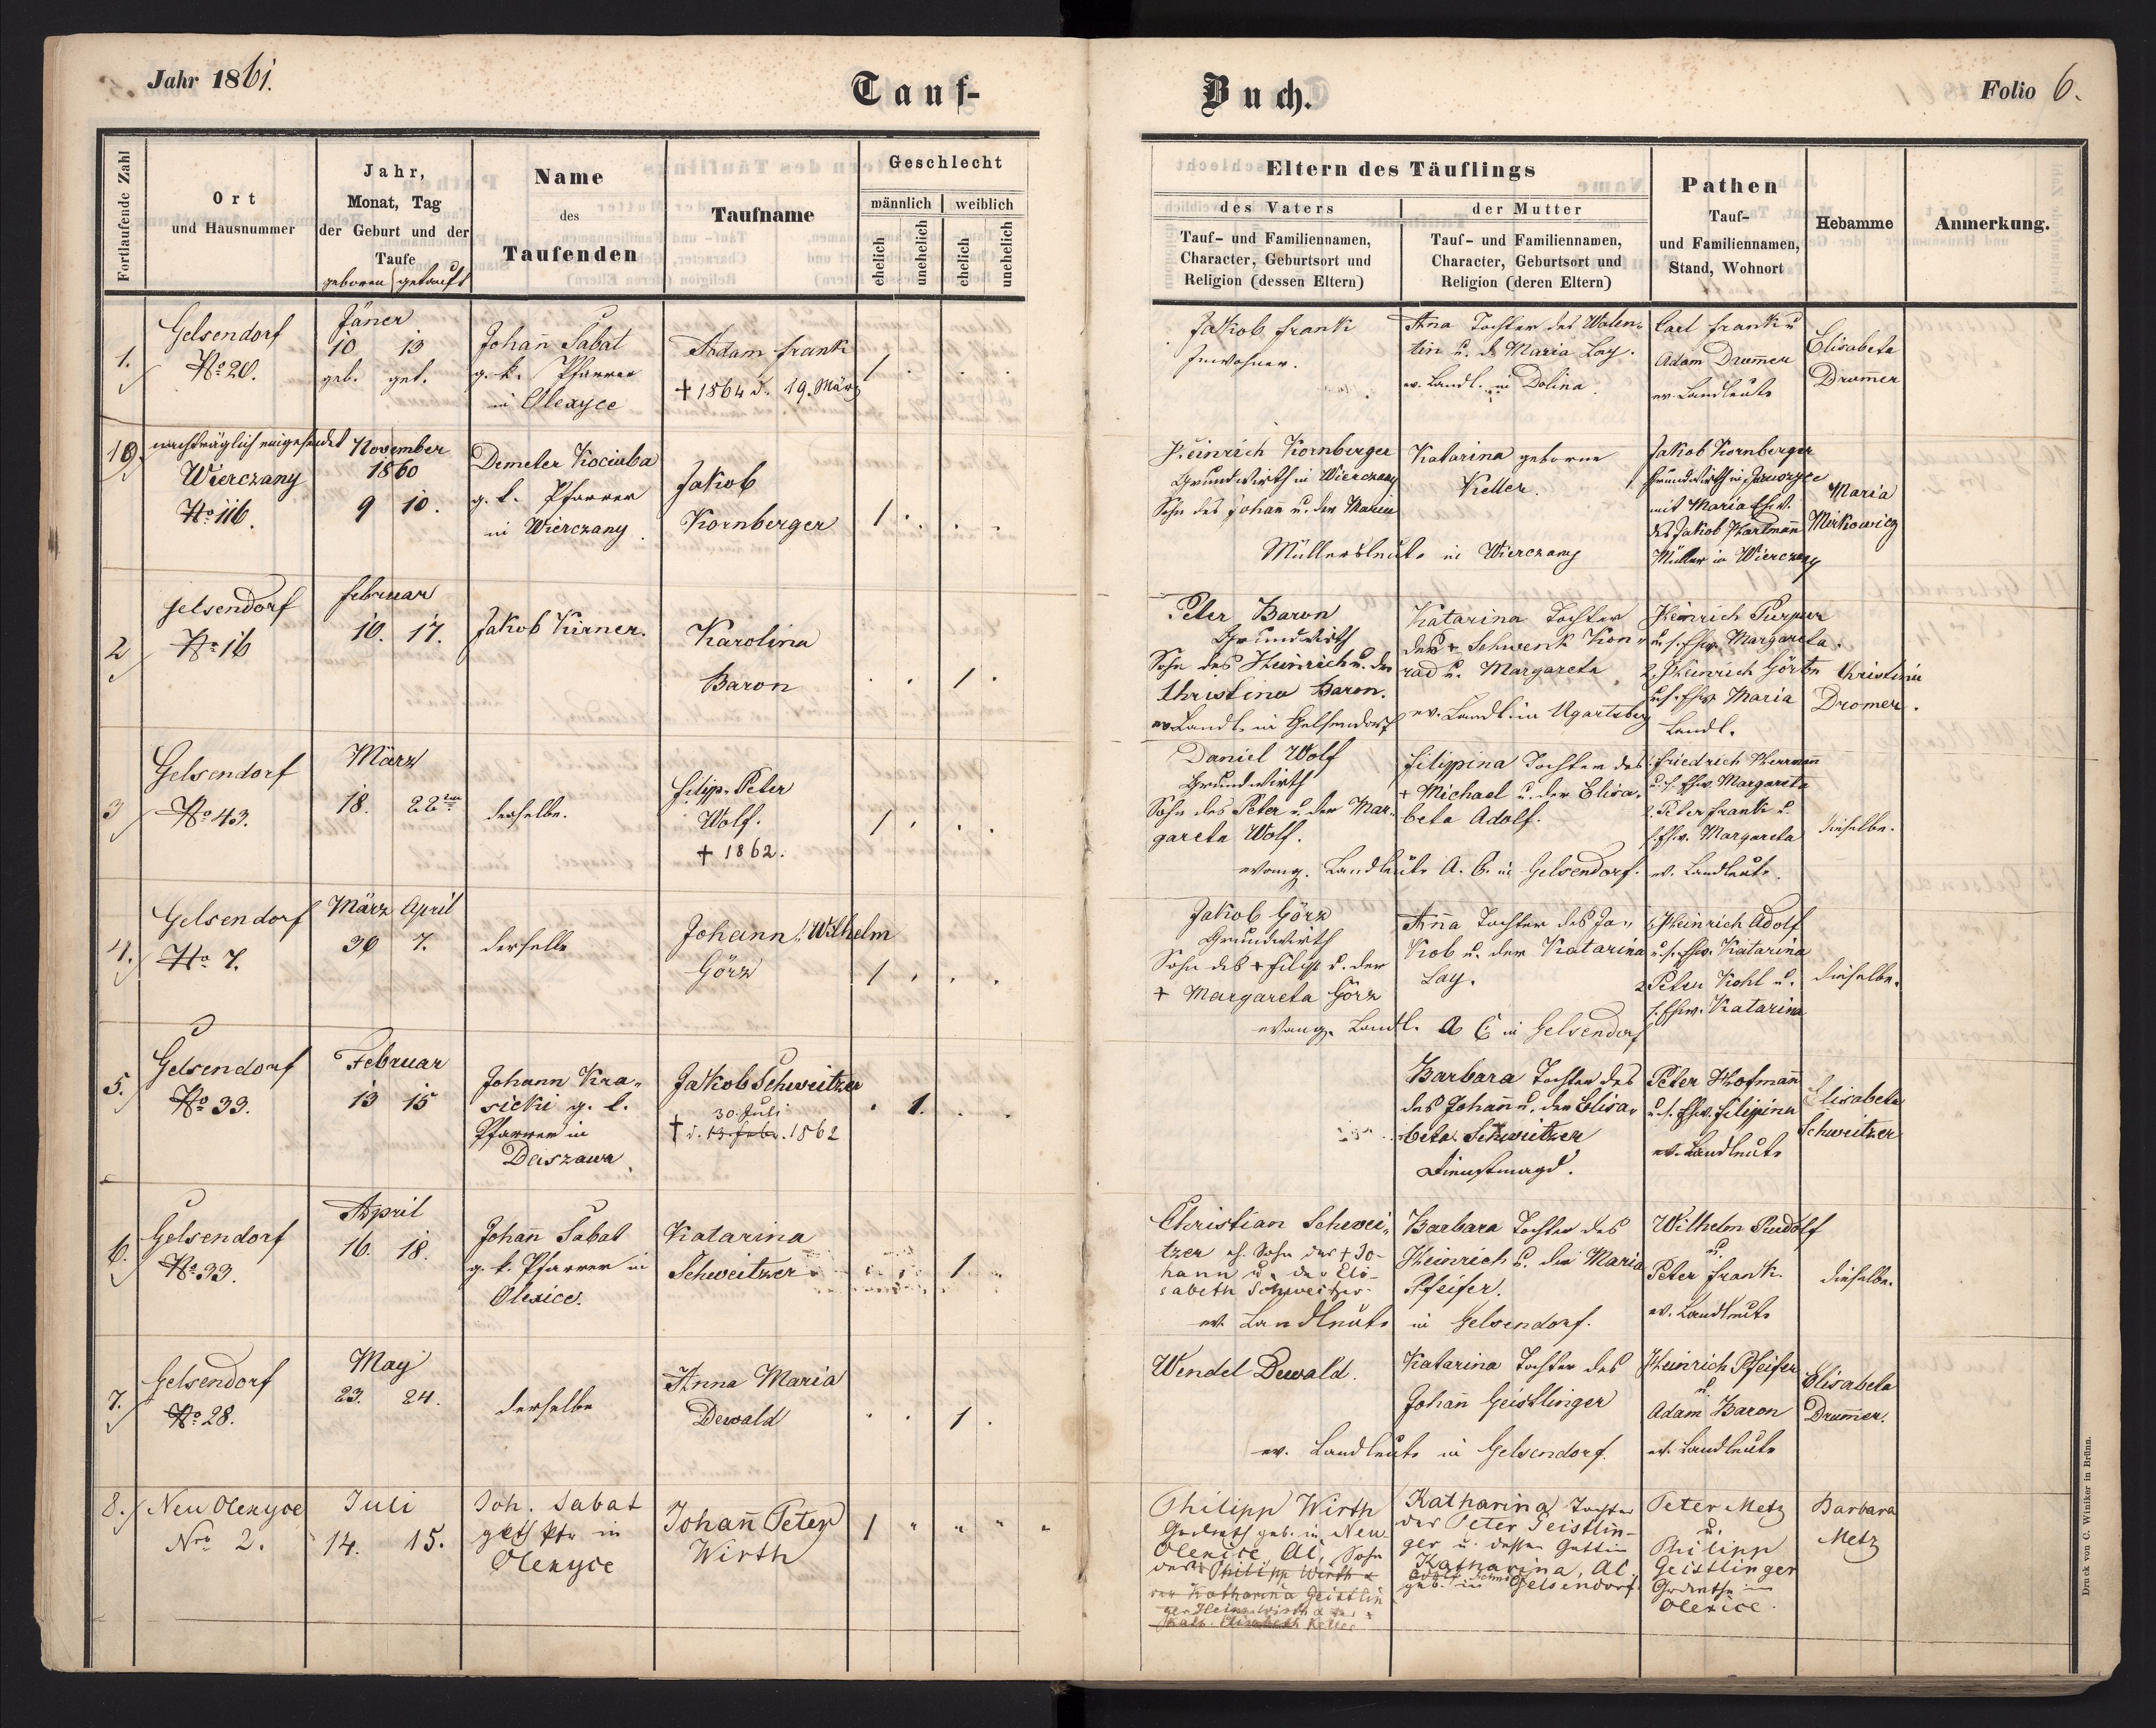 Jahr 1861.
Tauf-
Buch.
Folio 6.
Fortlaufende Zahl
Ort
und Hausnummer
Jahr,
Monat, Tag
der Geburt und der
Taufe
geboren getauft
Name
des
Taufenden
Taufname
Geschlecht
männlich weiblich
ehelich unehelich ehelich unehelich
Eltern des Täuflings
des Vaters
Tauf- und Familiennamen,
Character, Geburtsort und
Religion (dessen Eltern)
der Mutter
Tauf- und Familiennamen,
Character, Geburtsort und
Religion (deren Eltern)
Pathen
Tauf-
und Familiennamen,
Stand, Wohnort
Hebamme
Anmerkung.
1.
Gelsendorf
No 20.
Jäner
10 13
geb. get.
Johañ Sabat
g. k. Pfarrer
in Olexyce
Adam Frank
+ 1864 d. 19. März
1
Jakob Frank
Inwohner.
Ana Tochter des Walen-
tin u. d. Maria Lay.
ev. Landl. in Dolina
Carl Frank u
Adam Drum̄er
ev. Landleute
Elisabeta
Drum̄er
10.
nachträglich eingesendet
Wierczany
No 116.
November
1860
9 10.
Demeter Kociuba
g. k. Pfarrer
in Wierczany.
Jakob
Kornberger
1
Heinrich Kornberger
Grundwirth in Wierczany
Sohn des Johañ u. der Maria
Katarina geborne
Keller.
Müllersleute in Wierczany
Jakob Kornberger
Grundwirth in
mit Maria Ehw.
des Jakob Hartmañ
Müller in Wierczany
Maria
Mirkowicz
2
Gelsendorf
No 16
Februar
10. 17.
Jakob Kirner.
Karolina
Baron
1
Peter Baron
Grundwirth
Sohn des Heinrich u. der
Christina Baron.
ev. Landl. in Gelsendorf
Katarina Tochter
des + Schwenk Kon-
rad u. Margareta
ev. Landl. in Ugartsberg
Heinrich Purpur
u. s. Ehw. Margareta.
2. Heinrich Görtz
u. s. Ehw. Maria
Landl.
Christina
Dromer.
3
Gelsendorf
No 43.
März
18. 22ten
derselbe.
Filipp Peter
Wolf.
+ 1862.
1
Daniel Wolf
Grundwirth
Sohn des Peter u. der Mar-
gareta Wolf.
Filippina Tochter des
+ Michael u. der Elisa-
beta Adolf.
evang. Landleute A. C. in Gelsendorf.
Friedrich Herrmañ
u. s. Ehw. Margareta
2. Peter Frank u.
s. Ehw. Margareta
ev. Landleute.
dieselbe.
4.
Gelsendorf
No 7.
März April
30 7.
derselbe
Johann Wilhelm
Görz
1
Jakob Görz
Grundwirth
Sohn des + Filipp u. der
+ Margareta Görz
Añna Tochter des Ja-
kob u. der Katarina
Lay.
evang. Landl. A C in Gelsendorf
1. Heinrich Adolf
u. s. Ehw. Katarina
2 Peter Kohl u.
s. Ehw. Katarina
dieselbe.
5.
Gelsendorf
No 33.
Februar
13 15
Johann Kra-
sicki g. k.
Pfarrer in
Daszawa
Jakob Schweitzer
30. Juli
+ d. 13. Febr. 1862
1.
Barbara Tochter des
des Johañ u. der Elisa-
beta Schweitzer
Dienstmagd.
Peter Hofmañ
u. s. Ehw. Filippina
ev. Landleute
Elisabeta
Schweitzer
6.
Gelsendorf
No 33.
April
16. 18.
Johañ Sabat
g. k. Pfarrer in
Olexice.
Katarina
Schweitzer
1
Christian Schwei-
tzer eh. Sohn des + Jo-
hann u. der Eli-
sabeth Schweitzer
Barbara Tochter des
Heinrich u. der Maria
Pfeifer.
ev. Landleute in Gelsendorf.
Wilhelm Rudolf
u.
Peter Frank.
ev. Landleute
dieselbe.
7.
Gelsendorf
No 28.
May
23. 24.
derselbe
Anna Maria
Dewald
1
Wendel Dewald.
Katarina Tochter des
Johañ Geistlinger
ev. Landleute in Gelsendorf.
Heinrich Pfeifer
u.
Adam Baron
ev. Landleute
Elisabeta
Drum̄er.
8.
Neu Olexyce
Nro 2.
Juli
14. 15.
Joh. Sabat
gkth Pfr in
Olexyce
Johañ Peter
Wirth
1
Philipp Wirth
Grdwirth geb. in Neu
Olexice AC, Sohn
des + Philipp Wirth &
der Katharina Geistlin
ger Hein. Wirth & der
Kath. Elisabeth Keller
Katharina Tochter
des Peter Geistlin-
ger u. dessen Gattin
Katharina, AC
geb. in Gelsendorf
Peter Metz
u.
Philipp
Geistlinger
Grdwirthe in
Olexice.
Barbara
Metz
Druck von C. Winiker in Brünn.